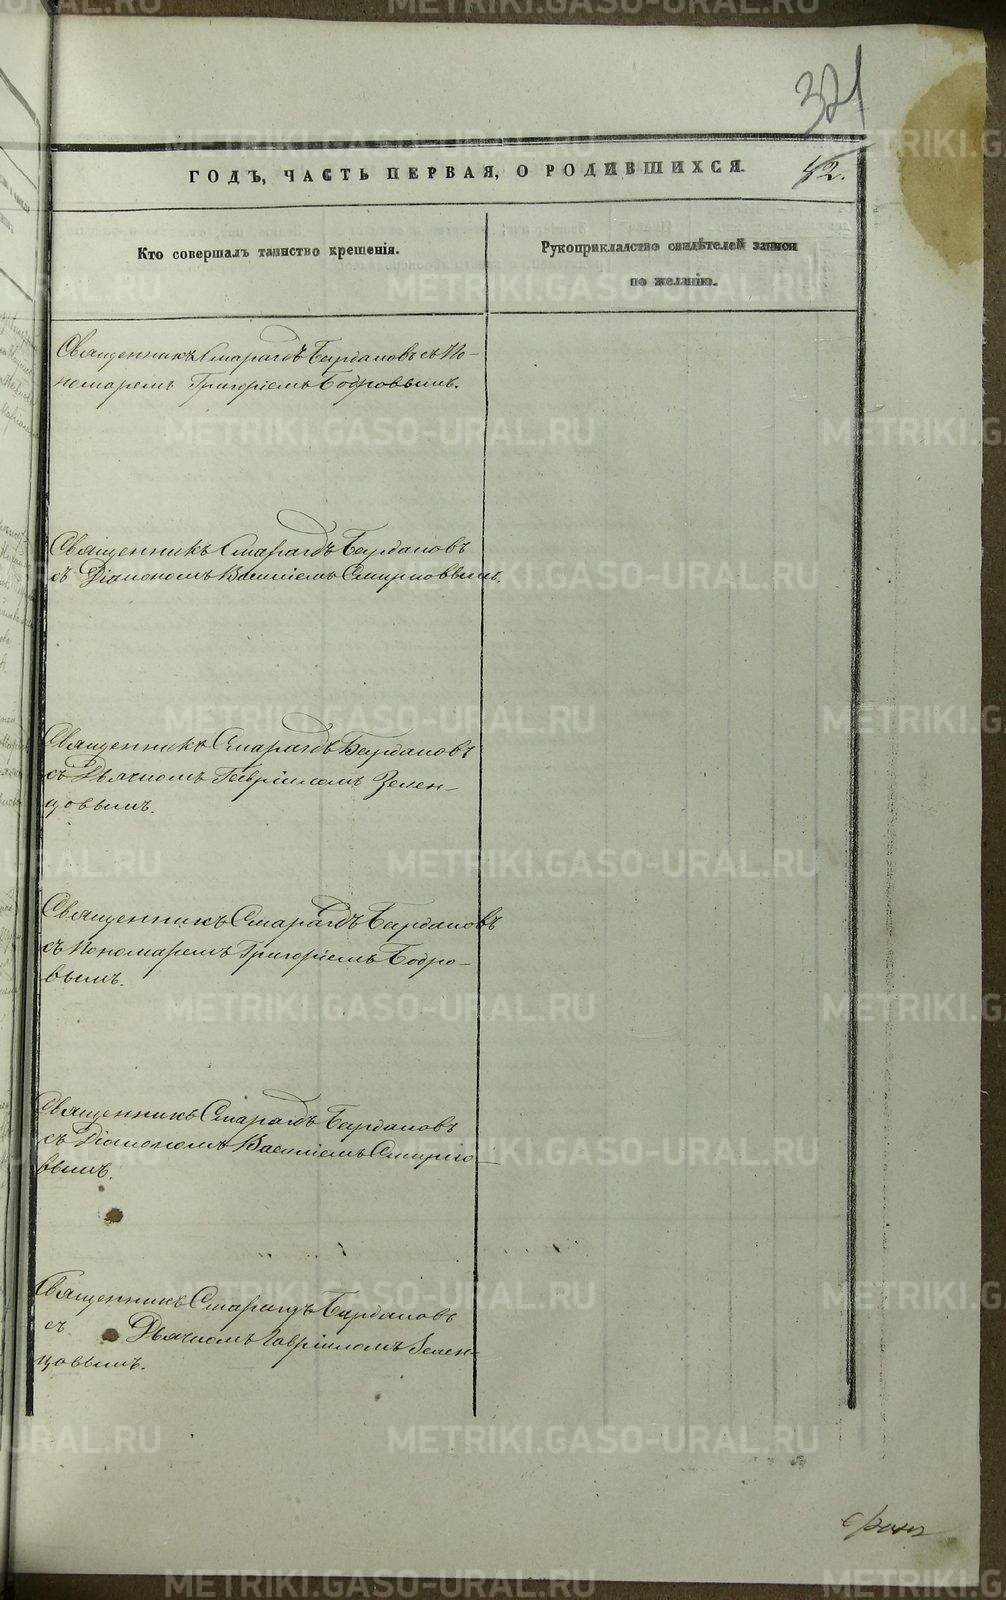 321
ГОДЪ, ЧАСТЬ ПЕРВАЯ, О РОДИВШИХСЯ.
42.
Кто совершалъ таинство крещенія.
Рукоприкладство свидѣтелей записи
по желанію.
Священникъ Смарагдъ Бардановъ съ По-
номаремъ Григоріемъ Бодровымъ.
Священникъ Смарагдъ Бардановъ
съ Діакономъ Василіемъ Смирновымъ.
Священникъ Смарагдъ Бардановъ
съ Дьячкомъ Гавріиломъ Зелен-
цовымъ.
Священникъ Смарагдъ Бардановъ
съ Пономаремъ Григоріемъ Бодро-
вымъ.
Священникъ Смарагдъ Бардановъ
съ Діакономъ Василіемъ Смирно-
вымъ.
Священникъ Смарагдъ Бардановъ
съ Дьячкомъ Гавріиломъ Зелен-
цовымъ.
METRIKI.GASO-URAL.RU